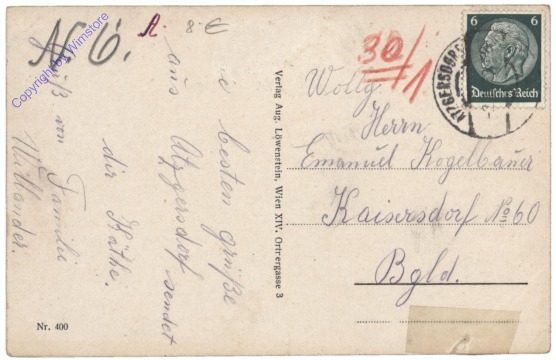 N 6.
A
8 €
Copyright by Wimstore
Die besten Grüße
aus Atzgersdorf sendet
dir Käthe.
Gruß von Familie
30/1
6 6
Deutsches Reich
ATZGERSDORF
Wollg.
Herrn
Emanuel Kogelbauer
Kaisersdorf No 60
Bgld.
Verlag Aug. Löwenstein, Wien XIV. Ortnergasse 3
Nr. 400